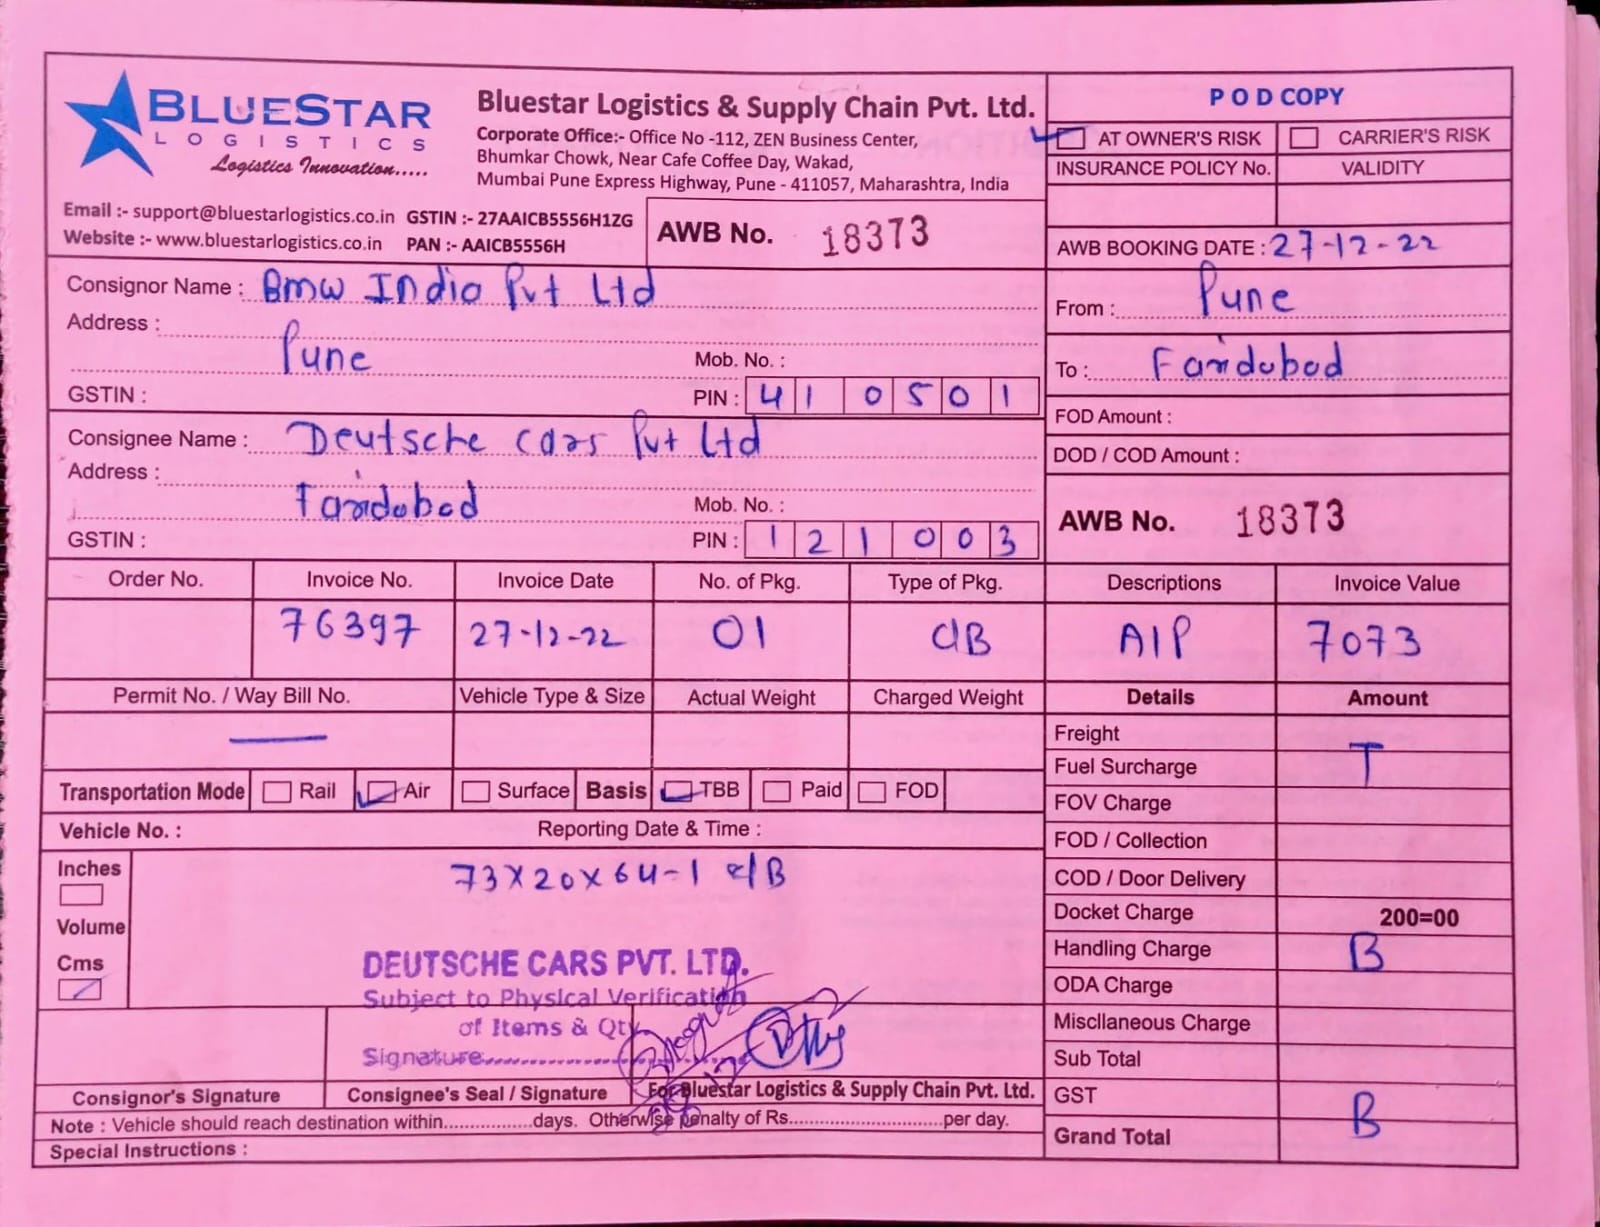 BLUESTAR
LOGISTICS
Logistics Innovation.....
Bluestar Logistics & Supply Chain Pvt. Ltd.
Corporate Office:- Office No -112, ZEN Business Center,
Bhumkar Chowk, Near Cafe Coffee Day, Wakad,
Mumbai Pune Express Highway, Pune - 411057, Maharashtra, India
Email :- support@bluestarlogistics.co.in GSTIN :- 27AAICB5556H1ZG
Website :- www.bluestarlogistics.co.in PAN :- AAICB5556H
AWB No. 18373
POD COPY
AT OWNER'S RISK CARRIER'S RISK
INSURANCE POLICY No. VALIDITY
AWB BOOKING DATE : 27-12-22
Consignor Name : Bmw India Pvt Ltd
Address :
Pune Mob. No. :
GSTIN : PIN : 410501
From : Pune
To : Faridabad
FOD Amount :
DOD / COD Amount :
Consignee Name : Deutsche cars Pvt Ltd
Address :
Faridabad Mob. No. :
GSTIN : PIN : 121003
AWB No. 18373
Order No. Invoice No. Invoice Date No. of Pkg. Type of Pkg. Descriptions Invoice Value
76397 27-12-22 01 C/B AIP 7073
Permit No. / Way Bill No. Vehicle Type & Size Actual Weight Charged Weight Details Amount
Freight
Fuel Surcharge T
FOV Charge
FOD / Collection
COD / Door Delivery
Docket Charge 200=00
Handling Charge B
ODA Charge
Miscllaneous Charge
Sub Total
GST
B
Grand Total
Transportation Mode Rail Air Surface Basis TBB Paid FOD
Vehicle No. : Reporting Date & Time :
Inches
Volume
Cms
73X20X64-1 C/B
DEUTSCHE CARS PVT. LTD.
Subject to Physical Verification
of Items & Qty
Signature...................
Consignor's Signature Consignee's Seal / Signature For Bluestar Logistics & Supply Chain Pvt. Ltd.
Note : Vehicle should reach destination within................days. Otherwise penalty of Rs............................per day.
Special Instructions :